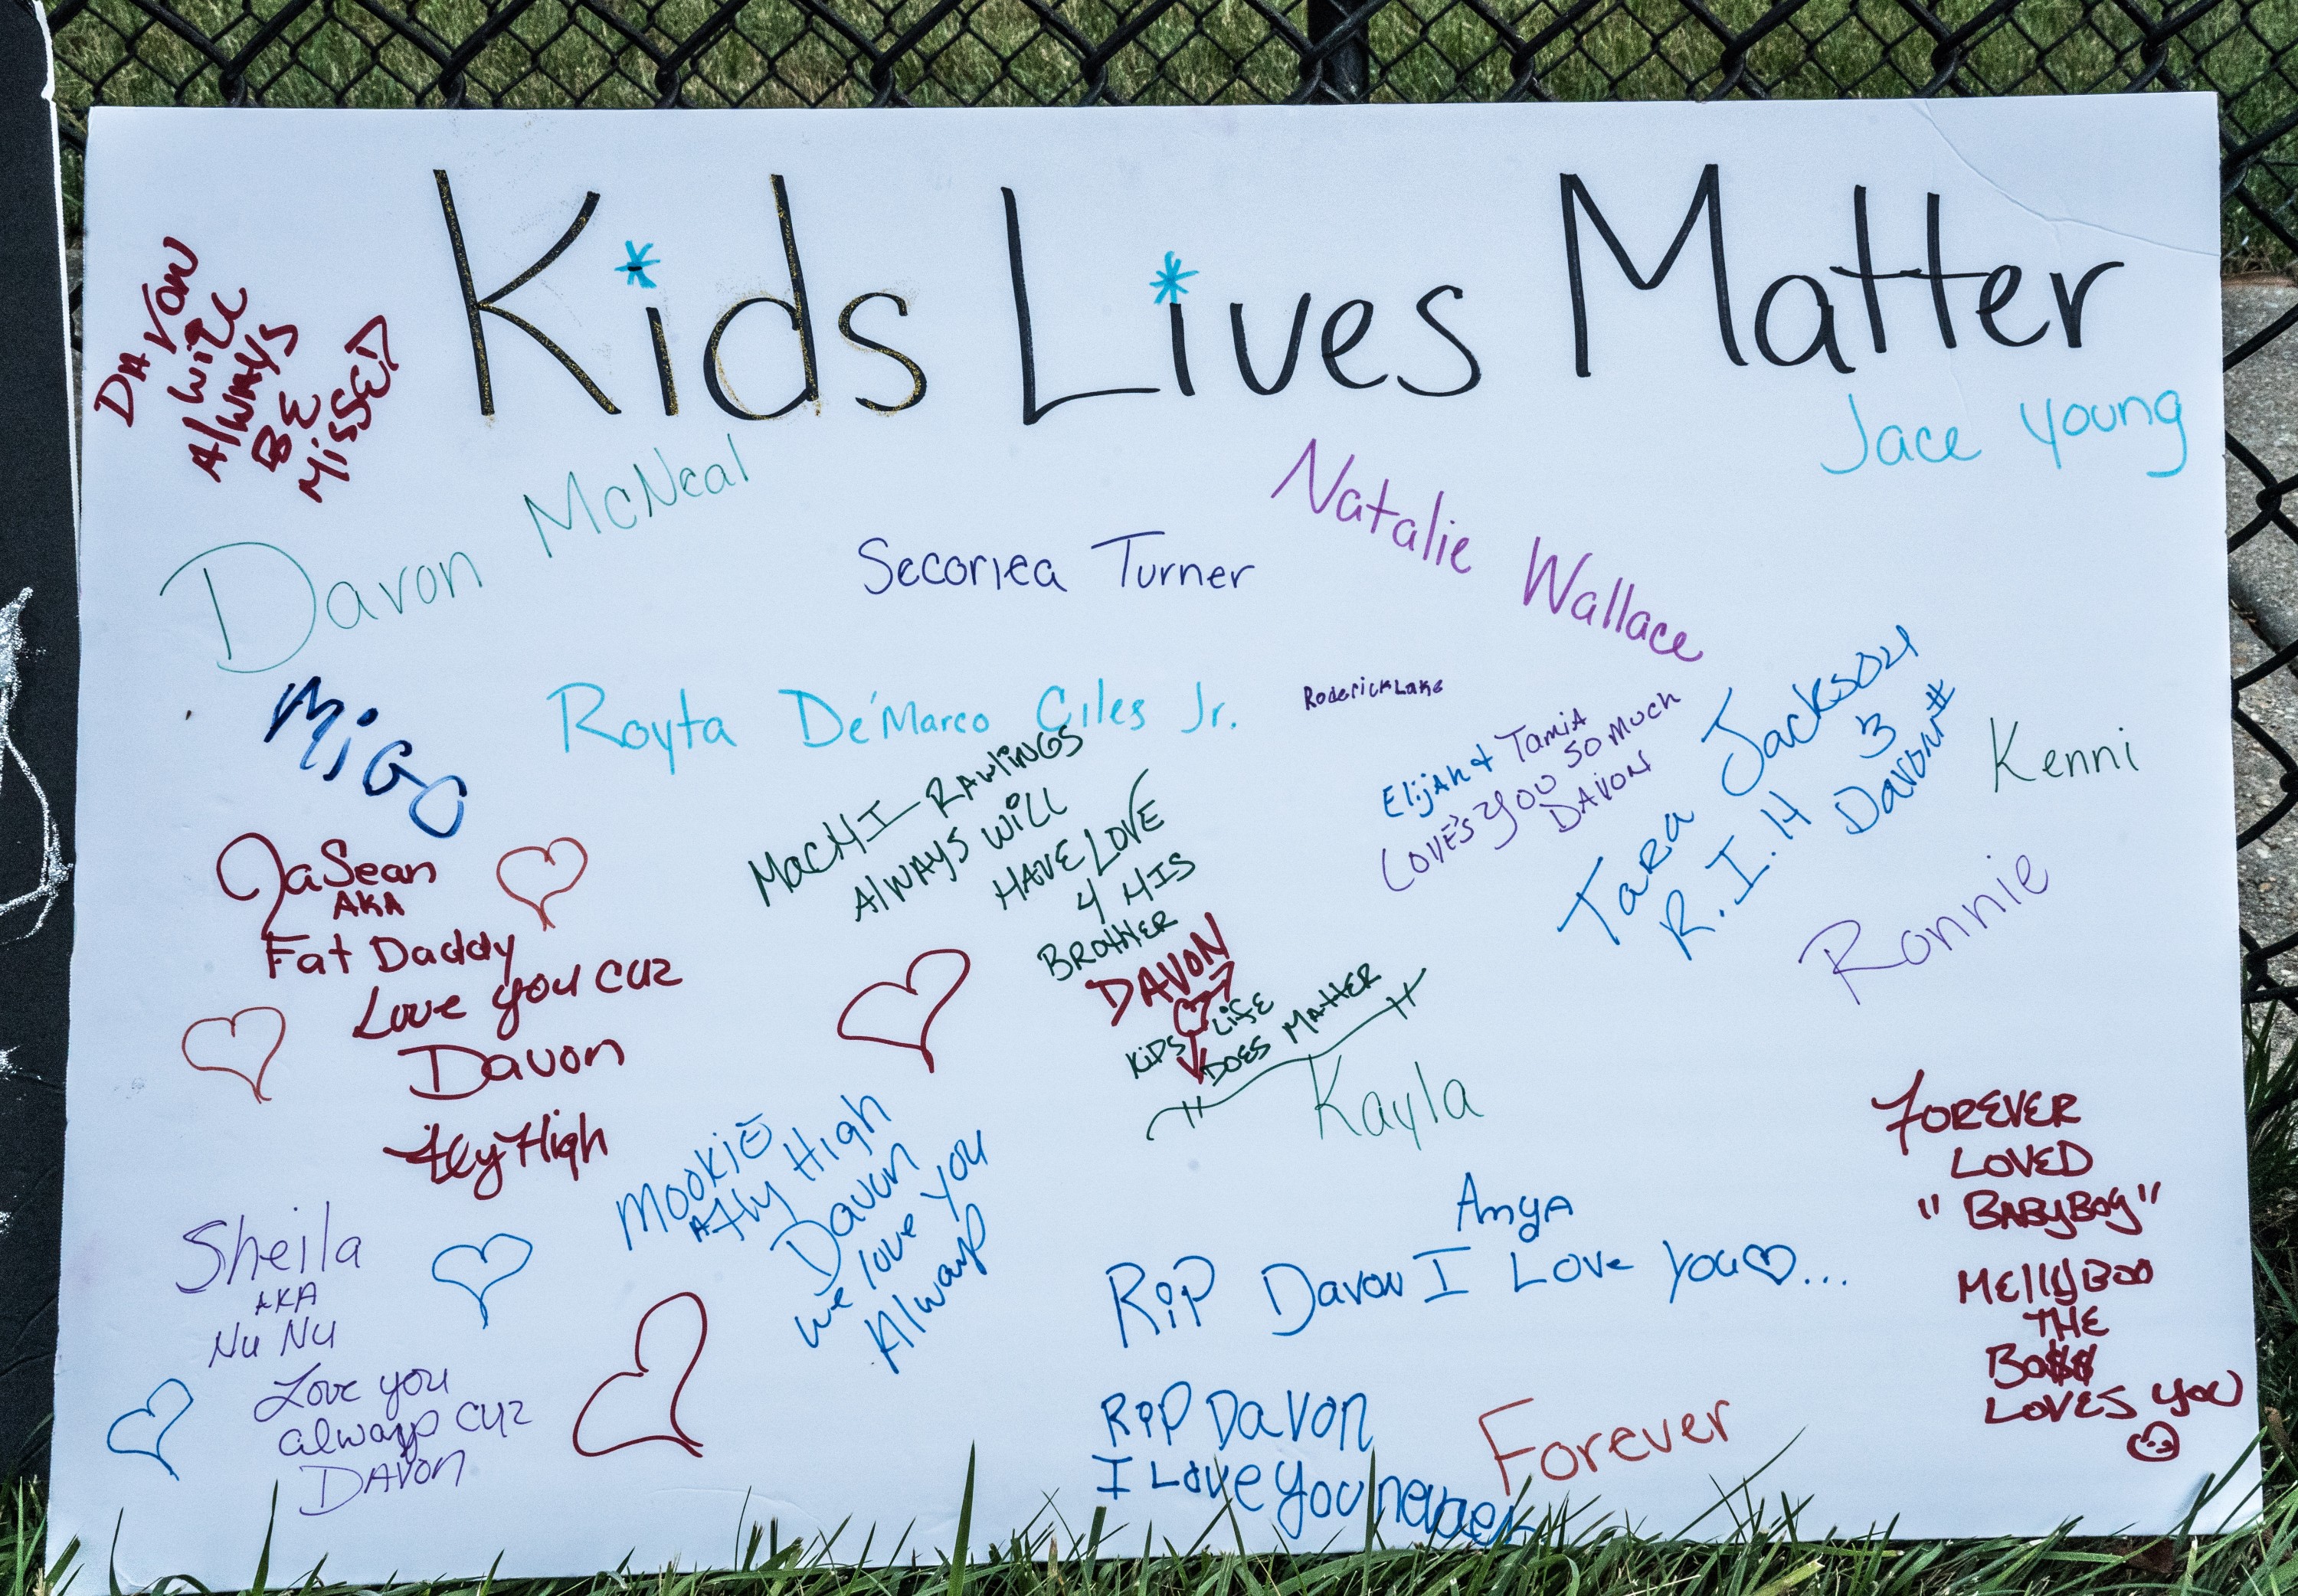 Kids Lives Matter
DAVON
WILL
AlWAYS
BE
MiSSED
Jace Young
Davon McNeal
Natalie Wallace
Secoriea Turner
MiGO
Royta De'Marco Ciles Jr.
RoderickLake
Elijah & Tamia
LOVE'S YOU SO MUCH
DAVON
Tara Jackson
R.I.H
Davon
Kenni
Ronnie
MacHI RAWliNGS
AlWAYS WiLL
HAVE LOVE
4 HIS
BROTHER
DAVON
KiDS LiFE
DOES MAttER
Kayla
JaSean
AKA
Fat Daddy
Love you CUZ
Davon
Fly High
MOOKiE
Fly High
Davon
We love you
Always
Sheila
AKA
Nu Nu
Love you
always cuz
DAVON
AnyA
RiP Davon I Love You...
RiP DaVon
I Love you
Forever
FOREVER
LOVED
"BABYBOY"
MEllyBoo
THE
BO$$
LOVES YOU